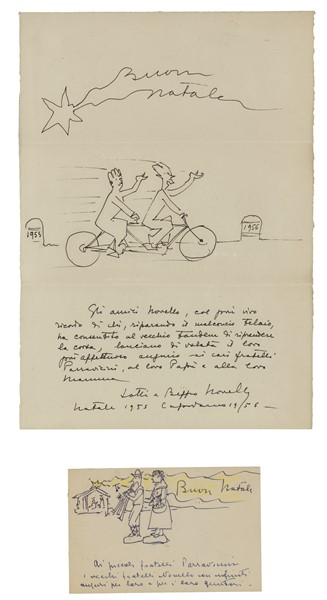 Buon
Natale
1955
1956
Gli amici Novello, col più vivo
ricordo di chi, riparando il malconcio telaio,
ha consentito al vecchio tandem di riprendere
la corsa, lanciano di volata il loro
più affettuoso augurio ai cari fratelli
Parravicini, al loro Papà e alla loro
Mamma
e Beppo Novello
Natale 1955 Capodanno 1956
Buon Natale
Ai piccoli fratelli Parravicini
i vecchi fratelli Novello con infiniti
auguri per loro e per i loro genitori.